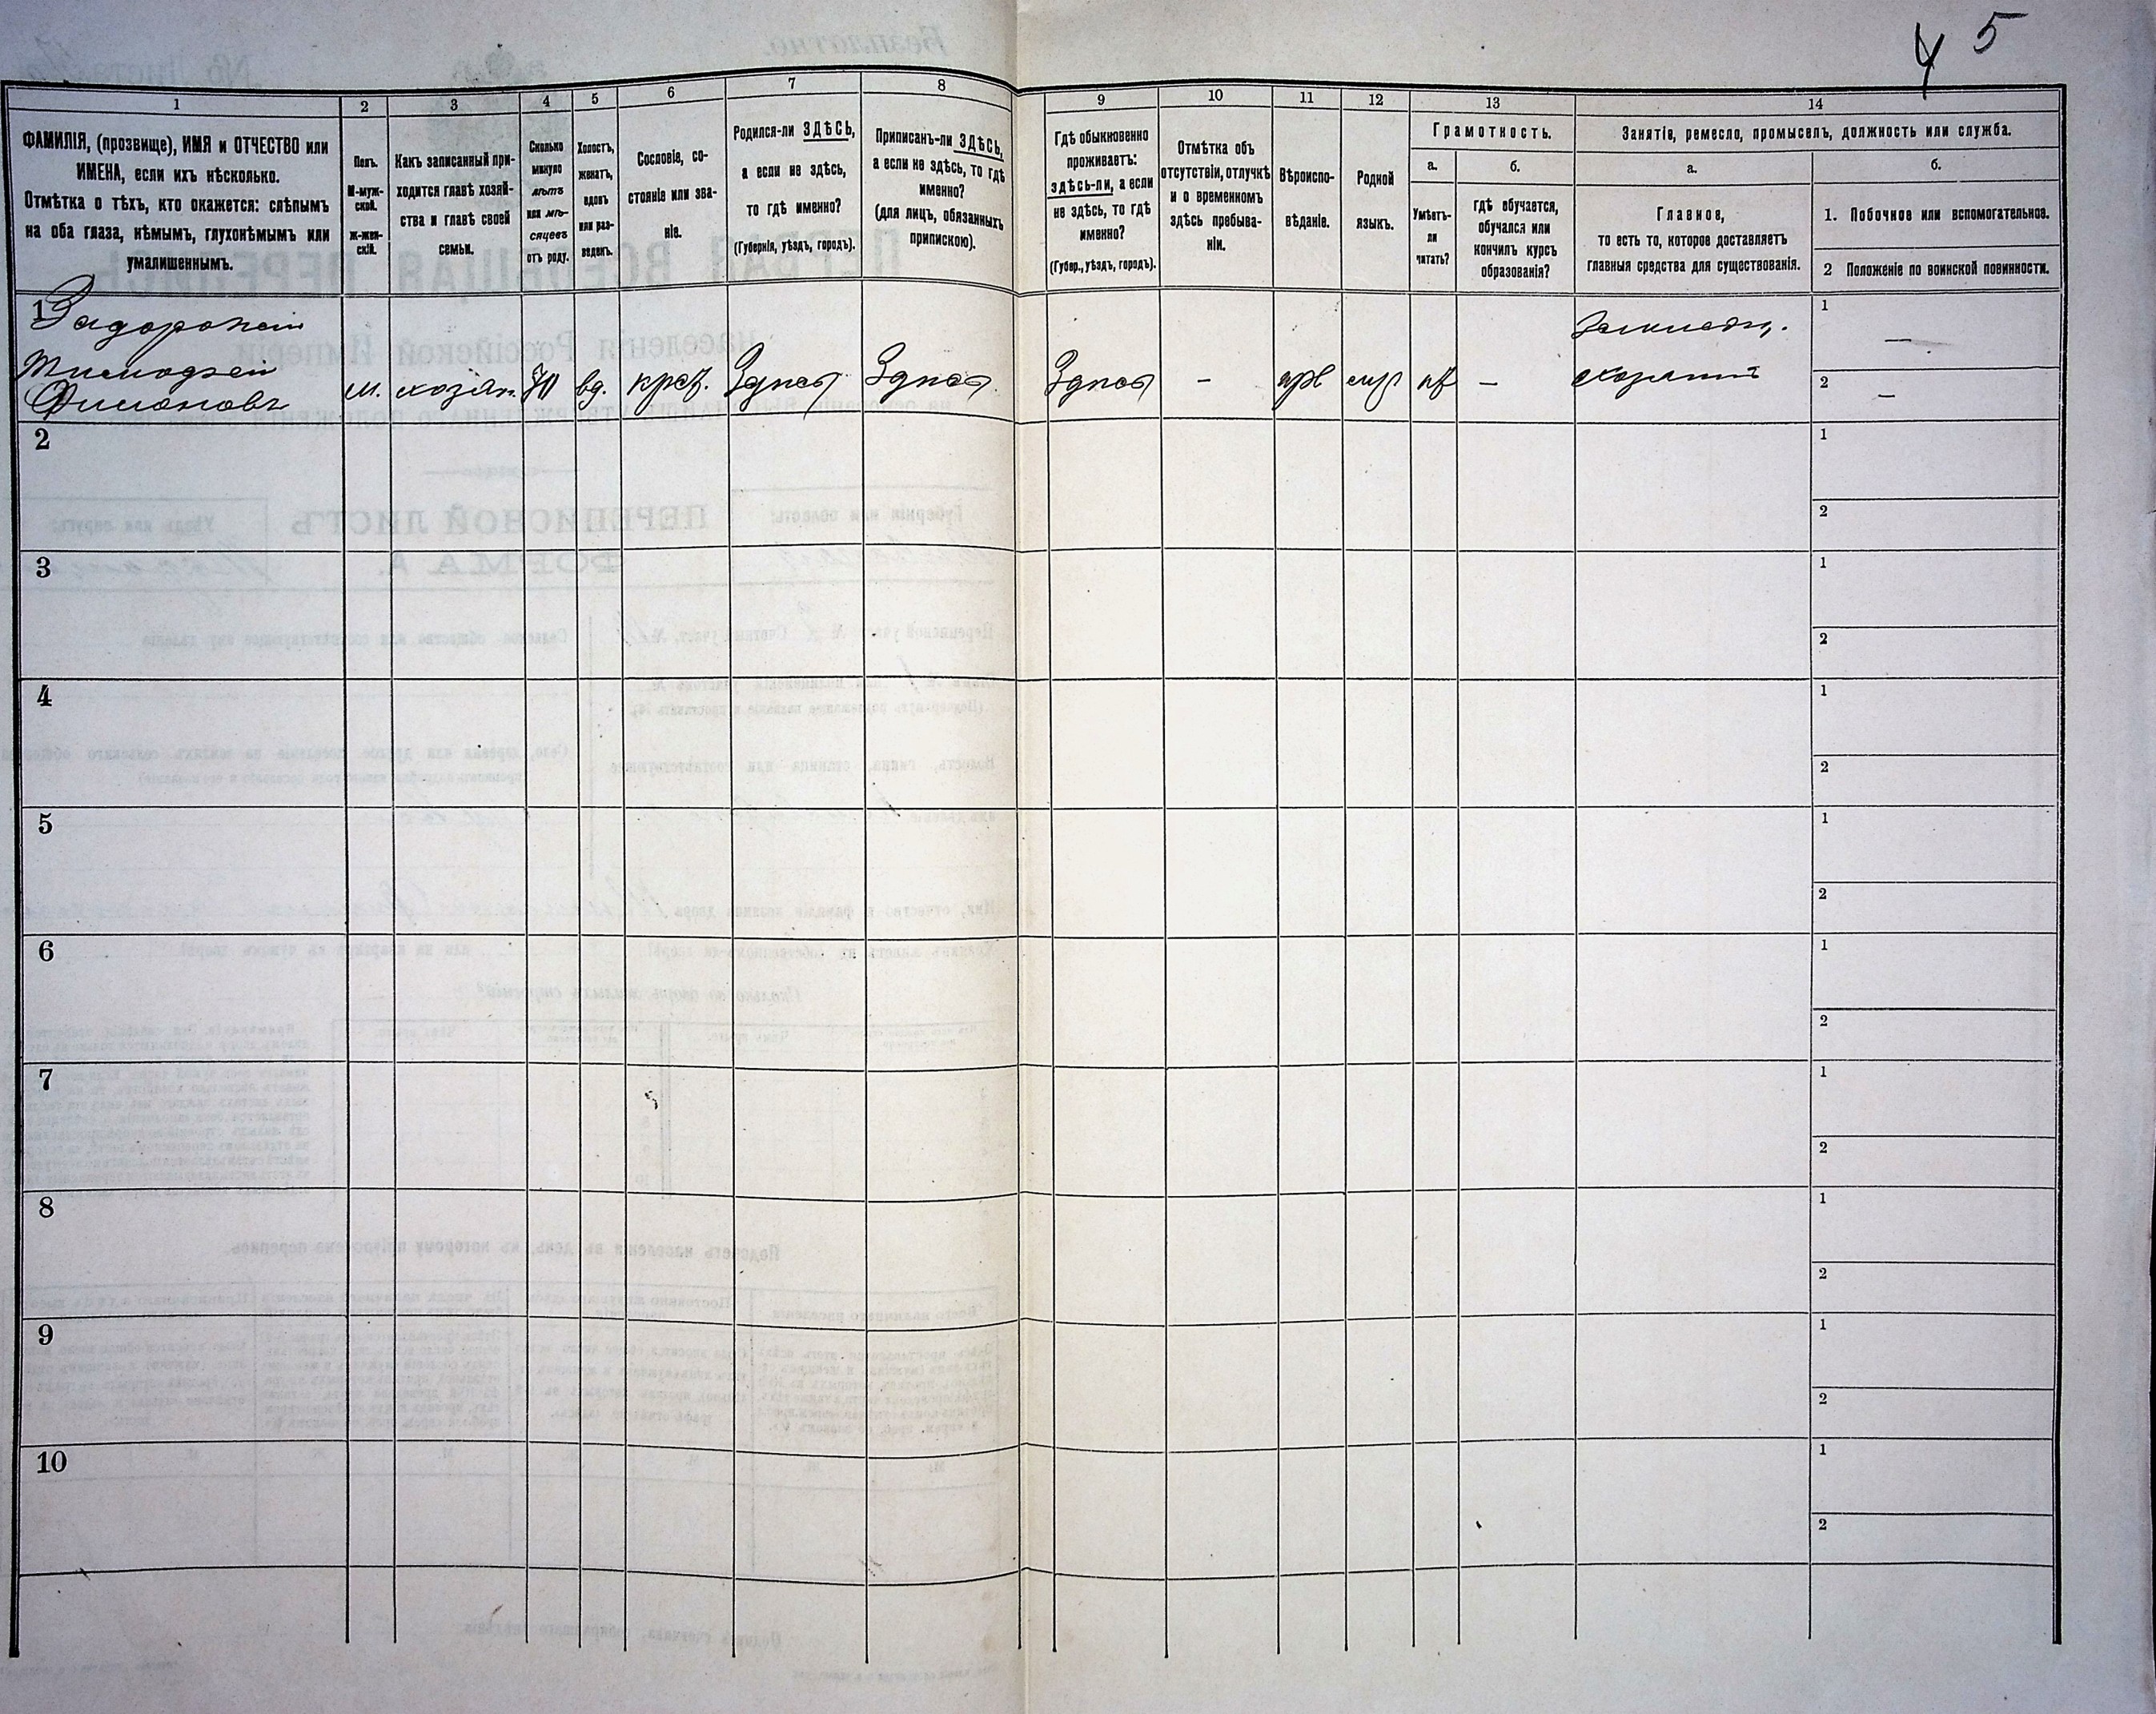 5
1
ФАМИЛІЯ, (прозвище), ИМЯ и ОТЧЕСТВО или
ИМЕНА, если ихъ нѣсколько.
Отмѣтка о тѣхъ, кто окажется: слѣпымъ
на оба глаза, нѣмымъ, глухонѣмымъ или
умалишеннымъ.
2
Полъ.
М-муж-
ской.
ж-жен-
скій.
3
Какъ записанный при-
ходится главѣ хозяй-
ства и главѣ своей
семьи.
4
Сколько
минуло
лѣтъ
или мѣ-
сяцевъ
отъ роду.
5
Холостъ,
женатъ,
вдовъ
или раз-
веденъ.
6
Сословіе, со-
стояніе или зва-
ніе.
7
Родился-ли ЗДѢСЬ,
а если не здѣсь,
то гдѣ именно?
(Губернія, уѣздъ, городъ).
8
Приписанъ-ли ЗДѢСЬ,
а если не здѣсь, то гдѣ
именно?
(для лицъ, обязанныхъ
припискою).
9
Гдѣ обыкновенно
проживаетъ:
здѣсь-ли, а если
не здѣсь, то гдѣ
именно?
(Губер., уѣздъ, городъ).
10
Отмѣтка объ
отсутствіи, отлучкѣ
и о временномъ
здѣсь пребыва-
ніи.
11
Вѣроиспо-
вѣданіе.
12
Родной
языкъ.
13
Грамотность.
а.
Умѣетъ-
ли
читать?
б.
гдѣ обучается,
обучался или
кончилъ курсъ
образованія?
14
Занятіе, ремесло, промыселъ, должность или служба.
а.
Главное,
то есть то, которое доставляетъ
главныя средства для существованія.
б.
1. Побочное или вспомогательное.
2 Положеніе по воинской повинности.
1
Задорожній
Тимофей
Филоновъ
м.
хозяин.
70
вд.
крест.
Здѣсь
Здѣсь
Здѣсь
–
–
хозяинъ
1
—
2
—
2
1
2
3
1
2
4
1
2
5
1
2
6
1
2
7
1
2
8
1
2
9
1
2
10
1
2